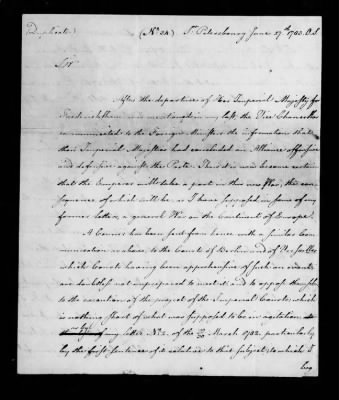 (Duplicate) (No. 24) St. Petersburg June 27th 1783. O.S
Sir
After the departure of Her Imperial Majesty for
Fredericksham as mentioned in my last, the Vice Chancellor
communicated to the Foreign Ministers the information that
their Imperial Majesties had concluded an Alliance offensive
and defensive against the Porte. Thus it is now become certain
that the Emperor will take a part in this new War, the con-
sequence of which will be, as I have supposed in some of my
former letters, a general War on the Continent of Europe.
A Courier has been sent from hence with a similar Com-
munication as above to the Courts of Berlin and of Versailles
which Courts having been apprehensive of such an event
are doubtless not unprepared to meet it and to oppose themselves
to the execution of the project of the Imperial Courts, which
is nothing short of what was supposed to be in agitation
by my letter No. 2. of the March 1783. particularly
by the first sentence of it relative to that subject; to which I
beg